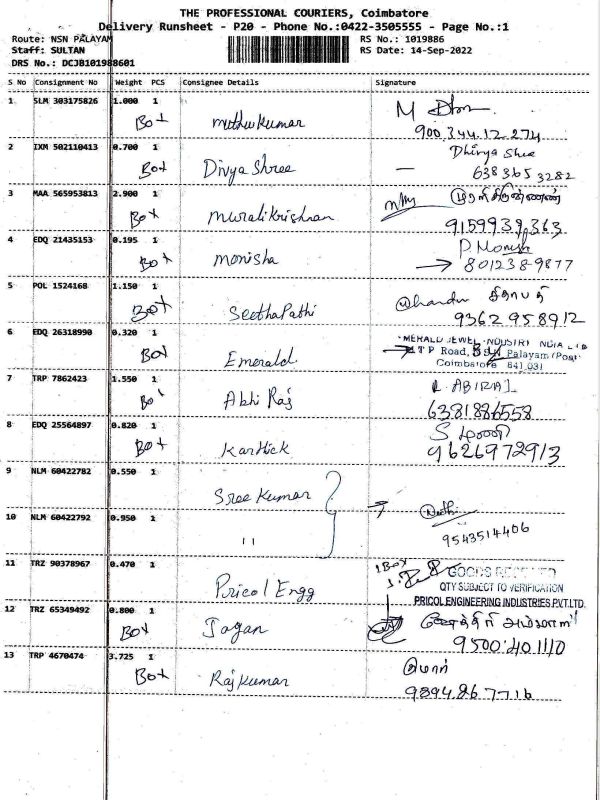 THE PROFESSIONAL COURIERS, Coimbatore
Delivery Runsheet - P20 - Phone No.:0422-3505555 - Page No.:1
Route: NSN PALAYAM
RS No.: 1019886
Staff: SULTAN
RS Date: 14-Sep-2022
DRS No.: DCJB1019888601
S No Consignment No Weight PCS Consignee Details Signature
1 SLM 303175826 1.000 1
Box muthukumar
900.344.12.274
2 IXM 502110413 0.700 1 Dhivya Shree
Box Divya Shree 638 365 3282
3 MAA 565953813 2.900 1
Box muralikrishnan 9159939,363
4 EDQ 21435153 0.195 1 P. Monisha
Box monisha 801238-9877
5 POL 1524168 1.150 1
Box SeethaPathi 93629 58912
6 EDQ 26318990 0.320 1 MERALD JEWEL NDUSTRY NDIA LTD
Box Emerald T P Road, N.S.N Palayam (Post
Coimbatore 641 031
7 TRP 7862423 1.550 1 ABIRAJ
Box Abhi Raj 6381886558
8 EDQ 25564897 0.820 1 S மணி
Box Karthick 9626972913
9 NLM 60422782 0.550 1
Sree Kumar
10 NLM 60422792 0.950 1
" 9543514406
11 TRZ 90378967 0.470 1 1 Box
GOODS RECEIVED
QTY SUBJECT TO VERIFICATION
Pricol Engg PRICOL ENGINEERING INDUSTRIES PVT.LTD.
12 TRZ 65349492 0.800 1
Box Jagan 9500.40.1110
13 TRP 4670474 3.725 1
Box Rajkumar 9894.86.7716